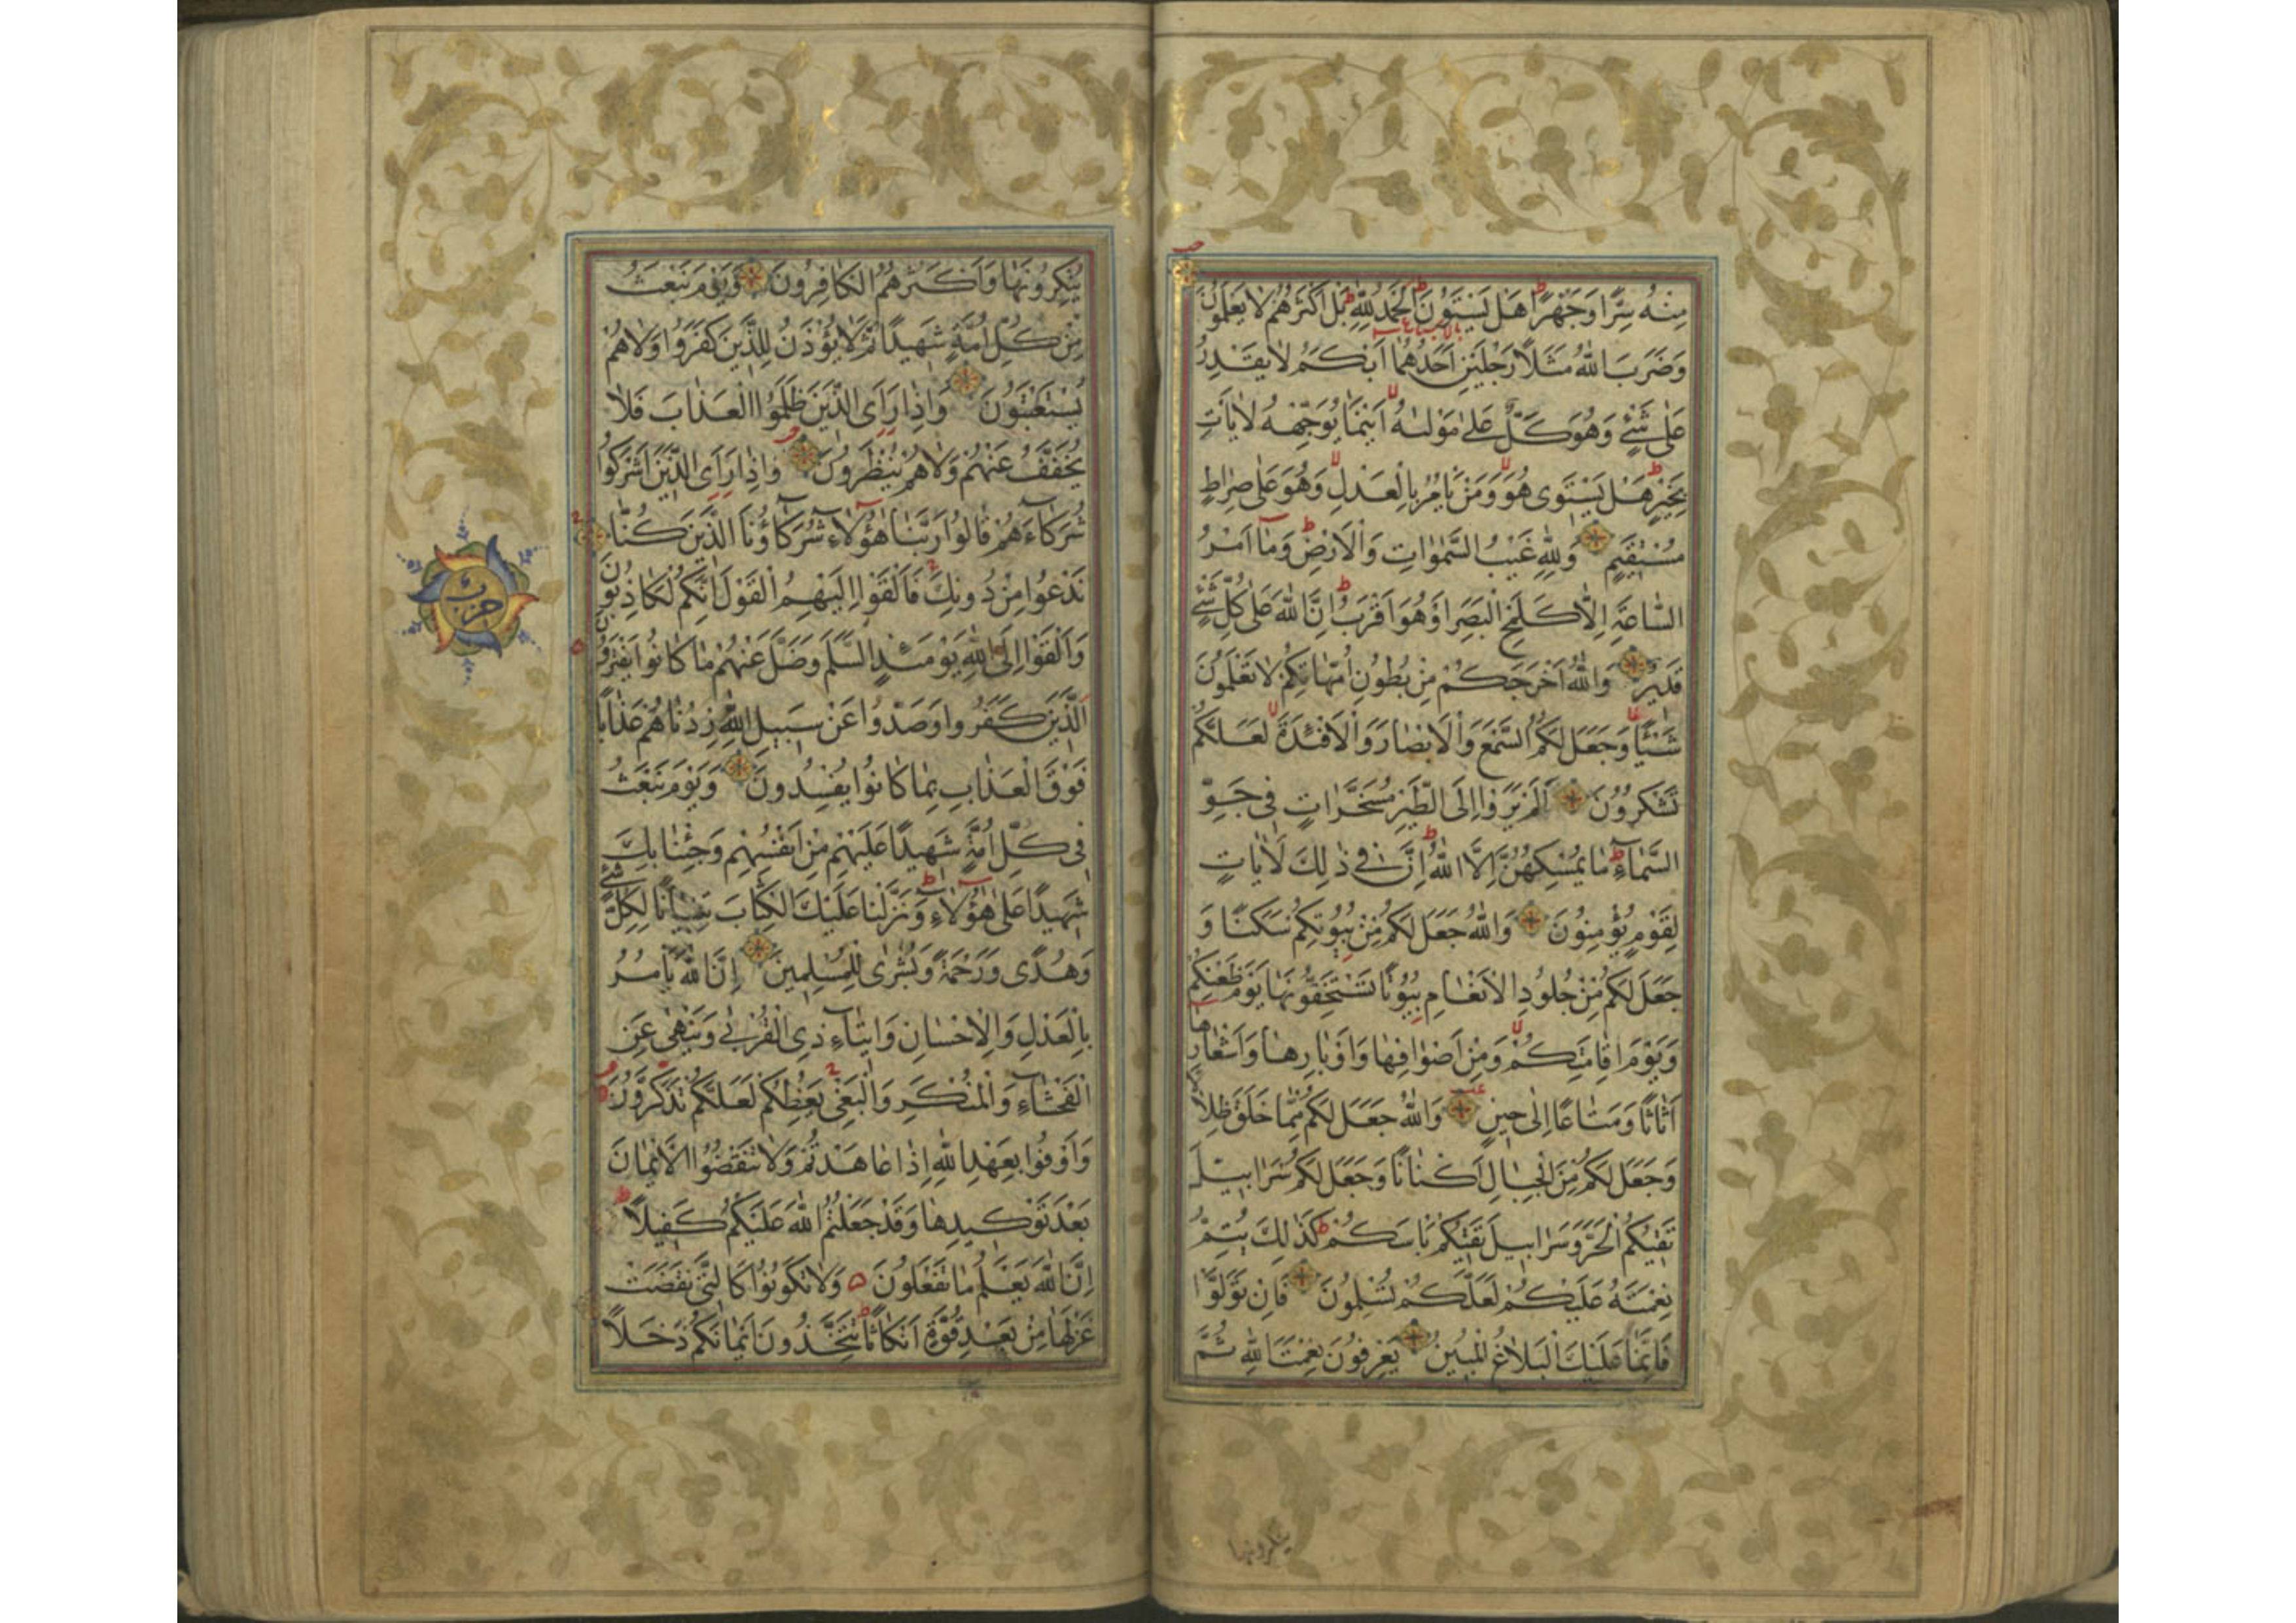 مِنْهُ سِرًّا وَجَهْرًا هَلْ يَسْتَوُونَ الْحَمْدُ لِلّٰهِ بَلْ اَكْثَرُهُمْ لَا يَعْلَمُونَ
وَضَرَبَ اللّٰهُ مَثَلًا رَجُلَيْنِ اَحَدُهُمَا اَبْكَمُ لَا يَقْدِرُ
عَلٰى شَيْءٍ وَهُوَ كَلٌّ عَلٰى مَوْلٰيهُ اَيْنَمَا يُوَجِّهْهُ لَا يَاْتِ
بِخَيْرٍ هَلْ يَسْتَوِى هُوَ وَمَنْ يَاْمُرُ بِالْعَدْلِ وَهُوَ عَلٰى صِرَاطٍ
مُسْتَقِيمٍ وَلِلّٰهِ غَيْبُ السَّمٰوَاتِ وَالْاَرْضِ وَمَا اَمْرُ
السَّاعَةِ اِلَّا كَلَمْحِ الْبَصَرِ اَوْ هُوَ اَقْرَبُ اِنَّ اللّٰهَ عَلٰى كُلِّ شَيْءٍ
قَدِيرٌ وَاللّٰهُ اَخْرَجَكُمْ مِنْ بُطُونِ اُمَّهَاتِكُمْ لَا تَعْلَمُونَ
شَيْئًا وَجَعَلَ لَكُمُ السَّمْعَ وَالْاَبْصَارَ وَالْاَفْئِدَةَ لَعَلَّكُمْ
تَشْكُرُونَ اَلَمْ يَرَوْا اِلَى الطَّيْرِ مُسَخَّرَاتٍ فِى جَوِّ
السَّمَاءِ مَا يُمْسِكُهُنَّ اِلَّا اللّٰهُ اِنَّ فِى ذٰلِكَ لَاٰيَاتٍ
لِقَوْمٍ يُؤْمِنُونَ وَاللّٰهُ جَعَلَ لَكُمْ مِنْ بُيُوتِكُمْ سَكَنًا وَ
جَعَلَ لَكُمْ مِنْ جُلُودِ الْاَنْعَامِ بُيُوتًا تَسْتَخِفُّونَهَا يَوْمَ ظَعْنِكُمْ
وَيَوْمَ اِقَامَتِكُمْ وَمِنْ اَصْوَافِهَا وَاَوْبَارِهَا وَاَشْعَارِهَا
اَثَاثًا وَمَتَاعًا اِلٰى حِينٍ وَاللّٰهُ جَعَلَ لَكُمْ مِمَّا خَلَقَ ظِلَالًا
وَجَعَلَ لَكُمْ مِنَ الْجِبَالِ اَكْنَانًا وَجَعَلَ لَكُمْ سَرَابِيلَ
تَقِيكُمُ الْحَرَّ وَسَرَابِيلَ تَقِيكُمْ بَاْسَكُمْ كَذٰلِكَ يُتِمُّ
نِعْمَتَهُ عَلَيْكُمْ لَعَلَّكُمْ تُسْلِمُونَ فَاِنْ تَوَلَّوْا
فَاِنَّمَا عَلَيْكَ الْبَلَاغُ الْمُبِينُ يَعْرِفُونَ نِعْمَتَ اللّٰهِ ثُمَّ
ينكرونها
يُنْكِرُونَهَا وَاَكْثَرُهُمُ الْكَافِرُونَ وَيَوْمَ نَبْعَثُ
مِنْ كُلِّ اُمَّةٍ شَهِيدًا ثُمَّ لَا يُؤْذَنُ لِلَّذِينَ كَفَرُوا وَلَا هُمْ
يُسْتَعْتَبُونَ وَاِذَا رَاَى الَّذِينَ ظَلَمُوا الْعَذَابَ فَلَا
يُخَفَّفُ عَنْهُمْ وَلَا هُمْ يُنْظَرُونَ وَاِذَا رَاَى الَّذِينَ اَشْرَكُوا
شُرَكَاءَهُمْ قَالُوا رَبَّنَا هٰؤُلَاءِ شُرَكَاؤُنَا الَّذِينَ كُنَّا
نَدْعُوا مِنْ دُونِكَ فَاَلْقَوْا اِلَيْهِمُ الْقَوْلَ اِنَّكُمْ لَكَاذِبُونَ
وَاَلْقَوْا اِلَى اللّٰهِ يَوْمَئِذٍ السَّلَمَ وَضَلَّ عَنْهُمْ مَا كَانُوا يَفْتَرُونَ
اَلَّذِينَ كَفَرُوا وَصَدُّوا عَنْ سَبِيلِ اللّٰهِ زِدْنَاهُمْ عَذَابًا
فَوْقَ الْعَذَابِ بِمَا كَانُوا يُفْسِدُونَ وَيَوْمَ نَبْعَثُ
فِى كُلِّ اُمَّةٍ شَهِيدًا عَلَيْهِمْ مِنْ اَنْفُسِهِمْ وَجِئْنَا بِكَ
شَهِيدًا عَلٰى هٰؤُلَاءِ وَنَزَّلْنَا عَلَيْكَ الْكِتَابَ تِبْيَانًا لِكُلِّ شَيْءٍ
وَهُدًى وَرَحْمَةً وَبُشْرٰى لِلْمُسْلِمِينَ اِنَّ اللّٰهَ يَاْمُرُ
بِالْعَدْلِ وَالْاِحْسَانِ وَاِيتَاءِ ذِى الْقُرْبٰى وَيَنْهٰى عَنِ
الْفَحْشَاءِ وَالْمُنْكَرِ وَالْبَغْىِ يَعِظُكُمْ لَعَلَّكُمْ تَذَكَّرُونَ
وَاَوْفُوا بِعَهْدِ اللّٰهِ اِذَا عَاهَدْتُمْ وَلَا تَنْقُضُوا الْاَيْمَانَ
بَعْدَ تَوْكِيدِهَا وَقَدْ جَعَلْتُمُ اللّٰهَ عَلَيْكُمْ كَفِيلًا
اِنَّ اللّٰهَ يَعْلَمُ مَا تَفْعَلُونَ وَلَا تَكُونُوا كَالَّتِى نَقَضَتْ
غَزْلَهَا مِنْ بَعْدِ قُوَّةٍ اَنْكَاثًا تَتَّخِذُونَ اَيْمَانَكُمْ دَخَلًا
حزب